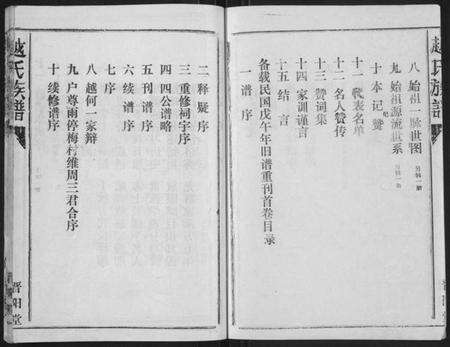 赵氏族谱
八 始祖一脉世图 另辑一册
九 始祖源流世系 另辑一册
十 本记赞
十一 代表名单
十二 名人赞传
十三 赞词集
十四 家训谨言
十五 结言
备载民国戊午年旧谱重刊首卷目录
一 谱序
二 释疑序
三 重修祠宇序
四 四公谱略
五 刊谱序
六 续谱序
七 序
八 越何一家辩
九 户尊雨停梅村维周三君合序
十 续修谱序
越氏族谱
晋阳堂